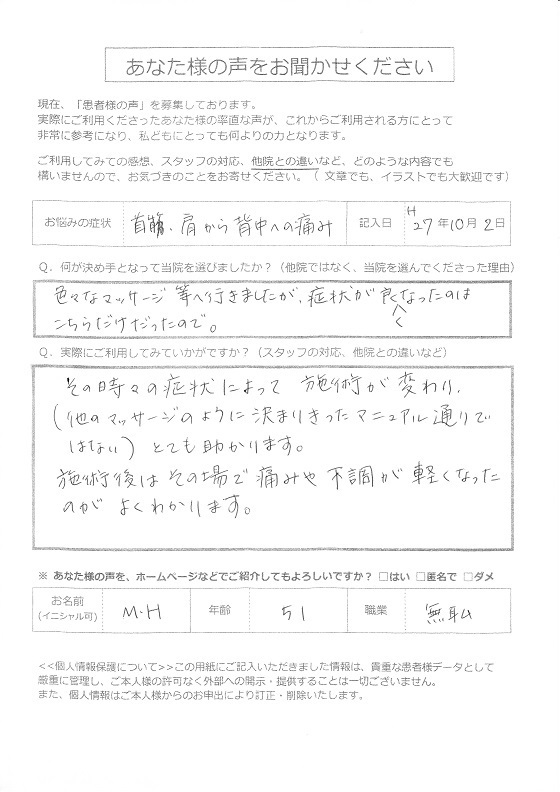 あなた様の声をお聞かせください
現在、「患者様の声」を募集しております。
実際にご利用くださったあなた様の率直な声が、これからご利用される方にとって
非常に参考になり、私どもにとっても何よりの力となります。
ご利用してみての感想、スタッフの対応、他院との違いなど、どのような内容でも
構いませんので、お気づきのことをお寄せください。（ 文章でも、イラストでも大歓迎です）
お悩みの症状 首筋、肩から背中への痛み 記入日 H27年10月2日
Q．何が決め手となって当院を選びましたか？（他院ではなく、当院を選んでくださった理由）
色々なマッサージ等へ行きましたが、症状が良くなったのは
こちらだけだったので。
Q．実際にご利用してみていかがですか？（スタッフの対応、他院との違いなど）
その時々の症状によって 施術が変わり、
（他のマッサージのように決まりきったマニュアル通りで
はない）とても助かります。
施術後はその場で痛みや不調が軽くなった
のがよくわかります。
※ あなた様の声を、ホームページなどでご紹介してもよろしいですか？ □はい □匿名で □ダメ
お名前
(イニシャル可) M・H 年齢 51 職業 無職
<<個人情報保護について>>この用紙にご記入いただきました情報は、貴重な患者様データとして
厳重に管理し、ご本人様の許可なく外部への開示・提供することは一切ございません。
また、個人情報はご本人様からのお申出により訂正・削除いたします。